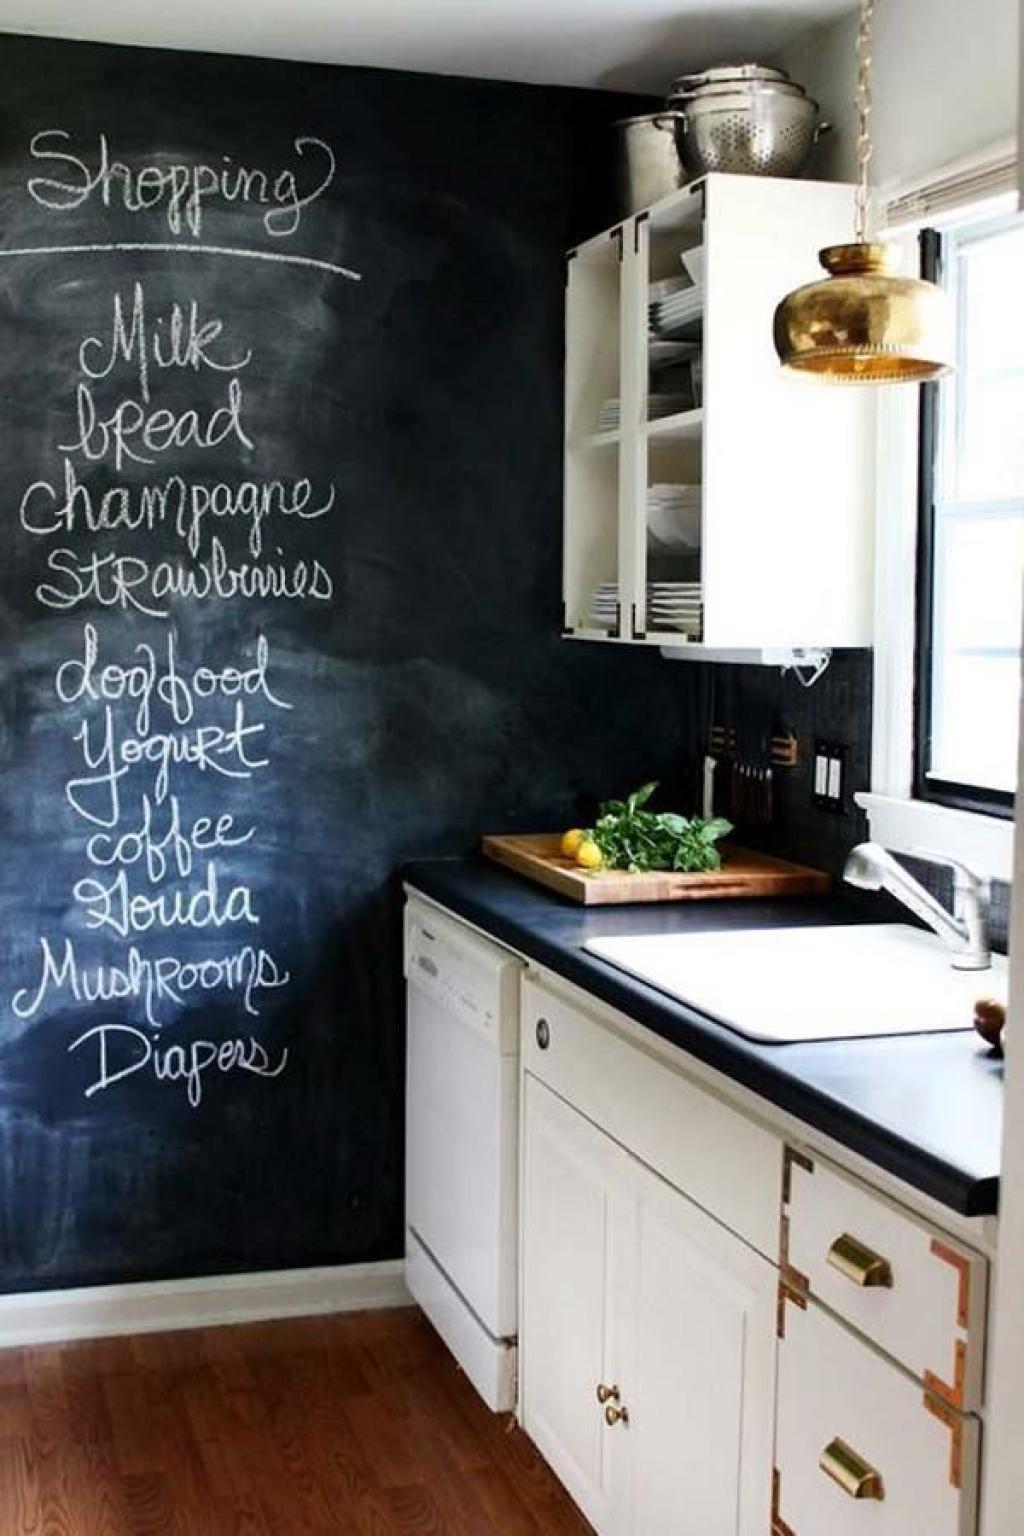 Shopping
Milk
bread
champagne
Strawberries
dog food
Yogurt
coffee
Gouda
Mushrooms
Diapers